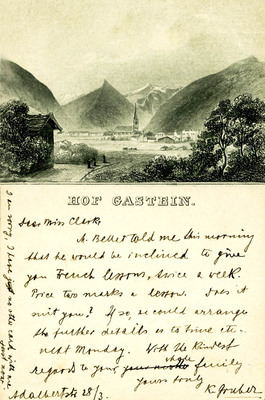 HOF GASTEIN.
Dear Miss Clerk,
A. Bellet told me this morning
that he would be inclined to give
you French lessons, twice a week.
Price two marks a lesson. Does it
suit you? If so, we could arrange
the further details as to time etc.
next Monday. With the kindest
regards to your whole family
yours truly
K. Gruber.
Adalbertstr. 28/3.
I am sorry, I have no other card with me
just now.